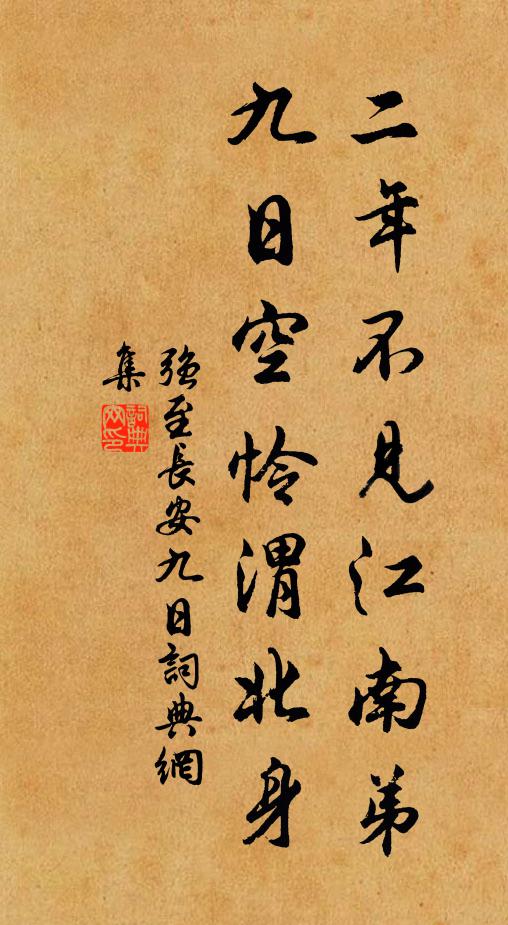 二年不見江南弟
九日空怜渭北身
强至長安九日詞典網
集
詞典
網印